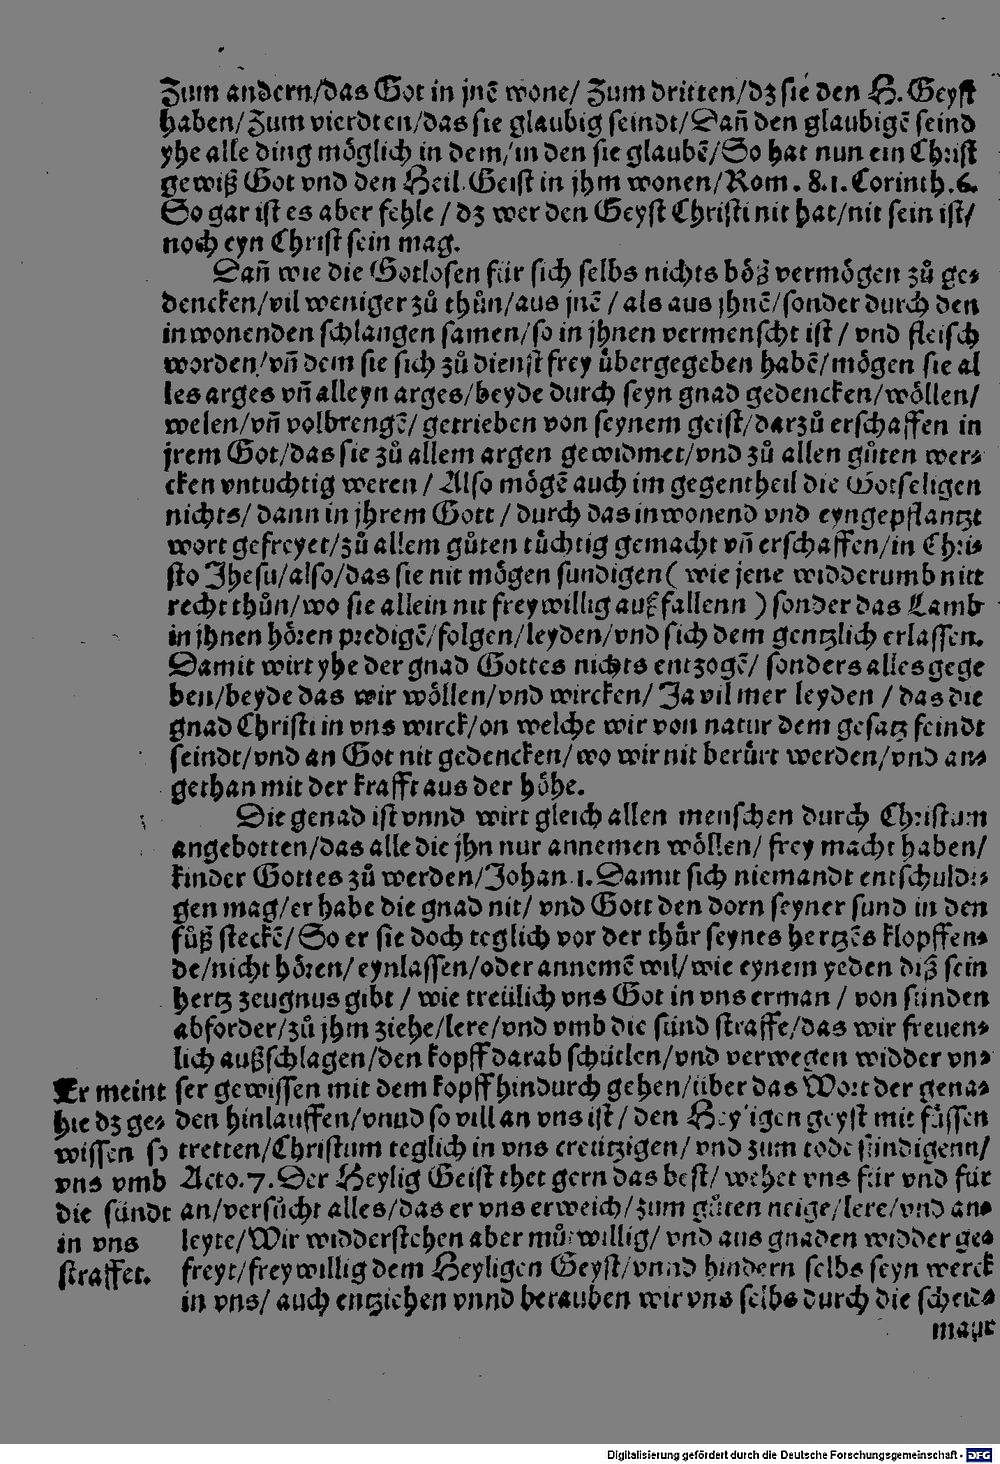 Zum andern/das Got in jnē wone/ Zum dritten/dz sie den H. Geyst
haben/Zum vierdten/das sie glaubig seindt/Dañ den glaubigē seind
yhe alle ding möglich in dem/in den sie glaubē/So hat nun ein Christ
gewiß Got vnd den Heil. Geist in jhm wonen/Rom. 8. 1. Corinth. 6.
So gar ist es aber fehle / dz wer den Geyst Christi nit hat/nit sein ist/
noch eyn Christ sein mag.
Dañ wie die Gotlosen für sich selbs nichts böß vermögen zů ge⸗
dencken/vil weniger zů thůn/aus jnē / als aus jhnē/sonder durch den
inwonenden schlangen samen/so in jhnen vermenscht ist / vnd fleisch
worden/vñ dem sie sich zů dienst frey übergegeben habē/mögen sie al
les arges vñ alleyn arges/beyde durch seyn gnad gedencken/wöllen/
welen/vñ volbrengē/ getrieben von seynem geist/darzů erschaffen in
jrem Got/das sie zů allem argen gewidmet/vnd zů allen gůten wer⸗
cken vntuchtig weren / Also mögē auch im gegentheil die Gotseligen
nichts/ dann in jhrem Gott / durch das inwonend vnd eyngepflantzt
wort gefreyet/zů allem gůten tüchtig gemacht vñ erschaffen/in Chri⸗
sto Jhesu/also/das sie nit mögen sundigen ( wie jene widderumb nitt
recht thůn/wo sie allein nit freywillig außfallenn ) sonder das Lamb
in jhnen hören predigē/folgen/leyden/vnd sich dem gentzlich erlassen.
Damit wirt yhe der gnad Gottes nichts entzogē/ sonders alles gege
ben/beyde das wir wöllen/vnd wircken/ Ja vil mer leyden / das die
gnad Christi in vns wirck/on welche wir von natur dem gesatz feindt
seindt/vnd an Got nit gedencken/wo wir nit berürt werden/vnd an⸗
gethan mit der krafft aus der höhe.
Die genad ist vnnd wirt gleich allen menschen durch Christum
angebotten/das alle die jhn nur annemen wöllen/ frey macht haben/
kinder Gottes zů werden/Johan. 1. Damit sich niemandt entschuldi⸗
gen mag/er habe die gnad nit/ vnd Gott den dorn seyner sund in den
fůß steckē/ So er sie doch teglich vor der thür seynes hertzēs klopffen⸗
de/nicht hören/ eynlassen/oder annemē wil/wie eynem yeden diß sein
hertz zeugnus gibt / wie treülich vns Got in vns erman / von sünden
abforder/zů jhm ziehe/lere/vnd vmb die sünd straffe/das wir freuen⸗
lich außschlagen/den kopff darab schütlen/vnd verwegen widder vn⸗
ser gewissen mit dem kopff hindurch gehen/über das Wort der gena⸗
den hinlauffen/vnnd so vill an vns ist / den Heyligen geyst mit füssen
tretten/Christum teglich in vns creützigen/ vnd zum tode sündigenn/
Acto. 7. Der Heylig Geist thet gern das best/ wehet vns für vnd für
an/versücht alles/das er vns erweich/zum gůten neige/lere/vnd an⸗
leyte/Wir widderstehen aber můtwillig/ vnd aus gnaden widder ge⸗
freyt/freywillig dem Heyligen Geyst/vnnd hindern selbs seyn werck
in vns/ auch entziehen vnnd berauben wir vns selbs durch die scheid⸗
maur
Er meint
hie dz ge⸗
wissen so
vns vmb
die sündt
in vns
straffet.
Digitalisierung gefördert durch die Deutsche Forschungsgemeinschaft - DFG